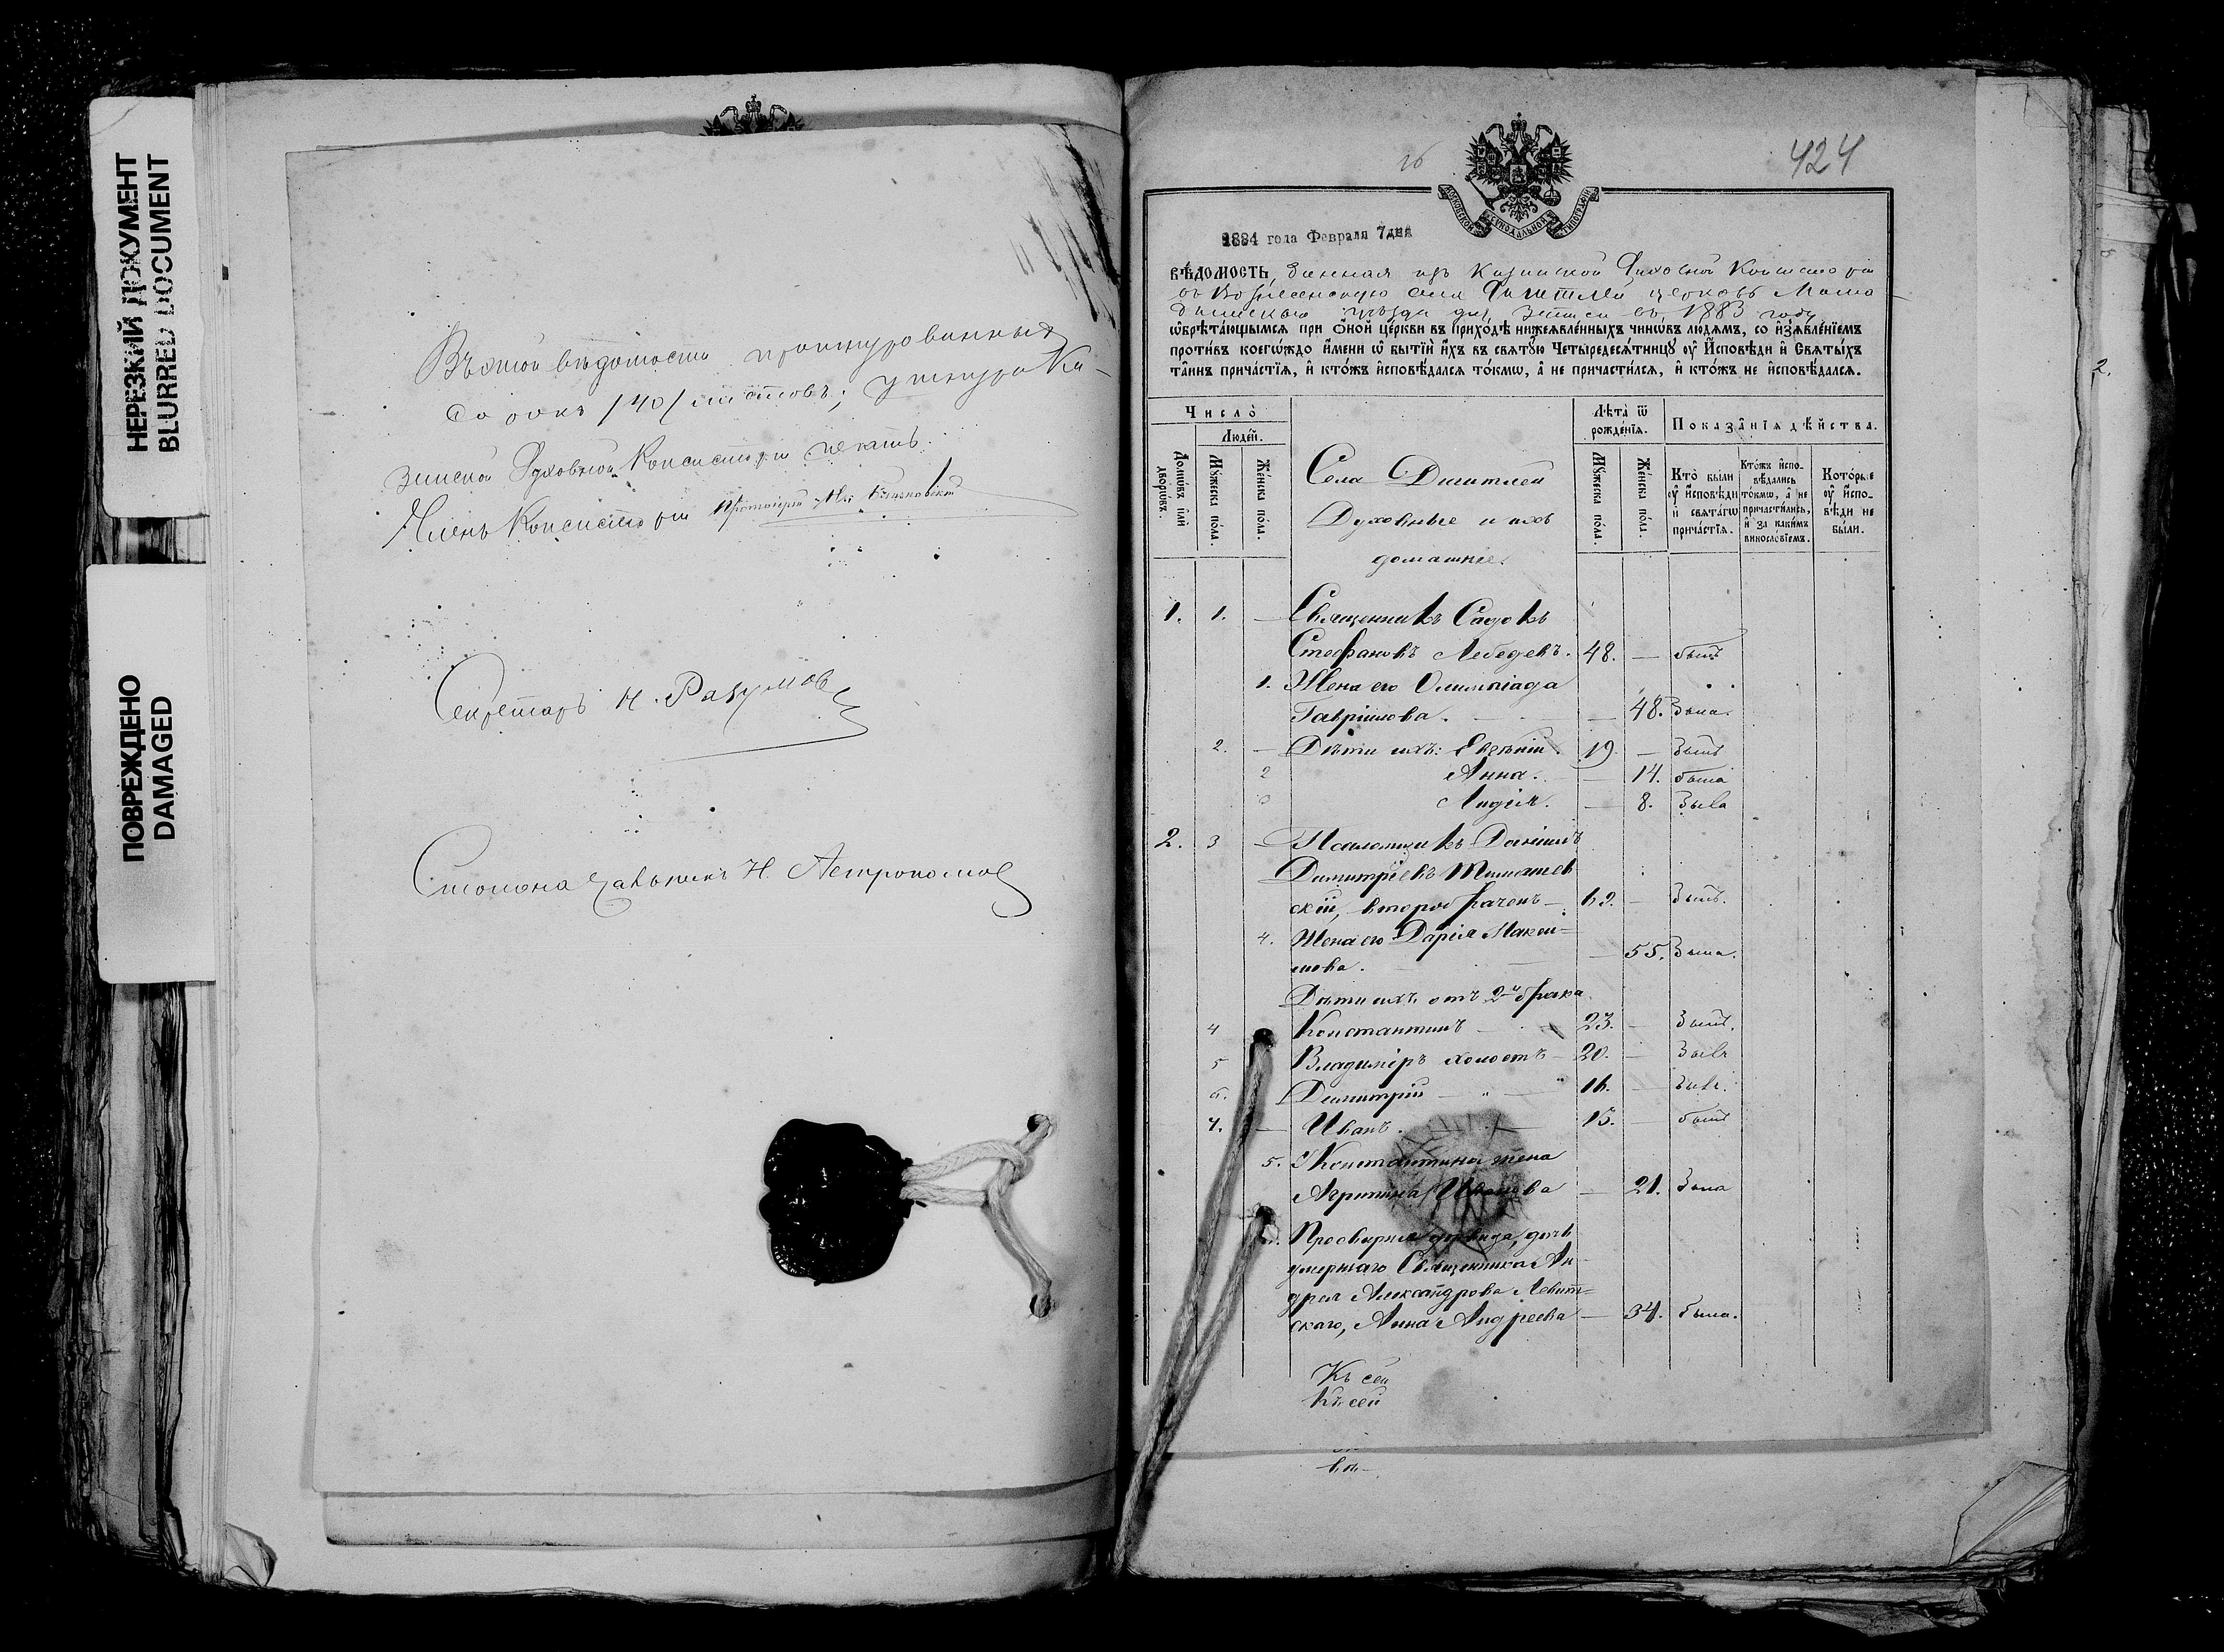 НЕРЕЗКИЙ ДОКУМЕНТ
BLURRED DOCUMENT
ПОВРЕЖДЕНО
DAMAGED
Въ этой вѣдомости прошнурованныхъ
сорокъ /40/ листовъ; у шнура Ка-
занской Духовной Консисторіи печать.
Членъ Консисторіи Протоіерей
Секретарь Н. Разумов
Столоначальникъ Н. Астрономов
424
МОСКОВСКОЙ СѴНОДАЛЬНОЙ ТИПОГРАФІИ
1884 года Февраля 7 дня
ВѢДОМОСТЬ, данная изъ Казанской Духовной Консисторіи
въ Вознесенскую села церковь Мама-
дышскаго уѣзда для записи въ 1883 году
ѡ҆брѣта́ющымсѧ при ѻ҆́ной це́ркви въ прихо́дѣ нижеѧвле́нныхъ чинѡ́въ лю́демъ, со и҆з̾ѧвле́нїемъ
проти́въ коегѡ́ждо и҆́мени ѡ҆ бытїѝ и҆́хъ въ свѧтꙋ́ю Четыредесѧ́тницꙋ ᲂу҆ И҆́сповѣди и҆ Свѧты́хъ
та̑инъ прича́стїѧ, и҆ кто́жъ и҆сповѣ́далсѧ то́кмѡ, а҆ не причасти́лсѧ, и҆ кто́жъ не и҆сповѣ́далсѧ.
Число̀
Люде́й.
Домѡ́въ и҆лѝ дворѡ́въ.
Мꙋ́жеска по́ла.
Же́нска по́ла.
Села
Духовные и ихъ
домашніе.
Лѣта̀ ѿ рожде́нїѧ.
Мꙋ́жеска по́ла.
Же́нска по́ла.
Показа̑нїѧ дѣ́йства.
Кто̀ бы́ли ᲂу҆ И҆́сповѣди и҆ свѧта́гѡ прича́стїѧ.
Кто́жъ и҆спо-вѣ́дались то́кмѡ, а҆ не причасти́лись, и҆ за каки́мъ винослѡ́вїемъ.
Кото́рые ᲂу҆ и҆́спо-вѣди не бы́ли.
1. 1. — Священникъ Садокъ
Стефановъ Лебедевъ. 48. — былъ
1. Жена его Олимпіада
Гавріилова. — 48. была.
2. — Дѣти ихъ: Евгеній. 19. — былъ
2 Анна. — 14. была
3 Лидія. — 8. была
2. 3 — Псаломщикъ Даніилъ
Димитріевъ
скій, второбраченъ — 62. — былъ.
4. Жена его Дарія Макси-
мова. — 55. была.
Дѣти ихъ отъ 2го брака
4 Константинъ — 23. — былъ.
5 Владиміръ холостъ — 20. — былъ
6. Димитрій — 16. — былъ.
7. — Иванъ. 13. — былъ
5. Константина жена
Агрипина Иванова — 21. была
Просвирня дѣвица, дочь
умершаго Священника Ан-
дрея Александрова Левит-
скаго, Анна Андреева — 34. была.
Къ сей
Къ сей